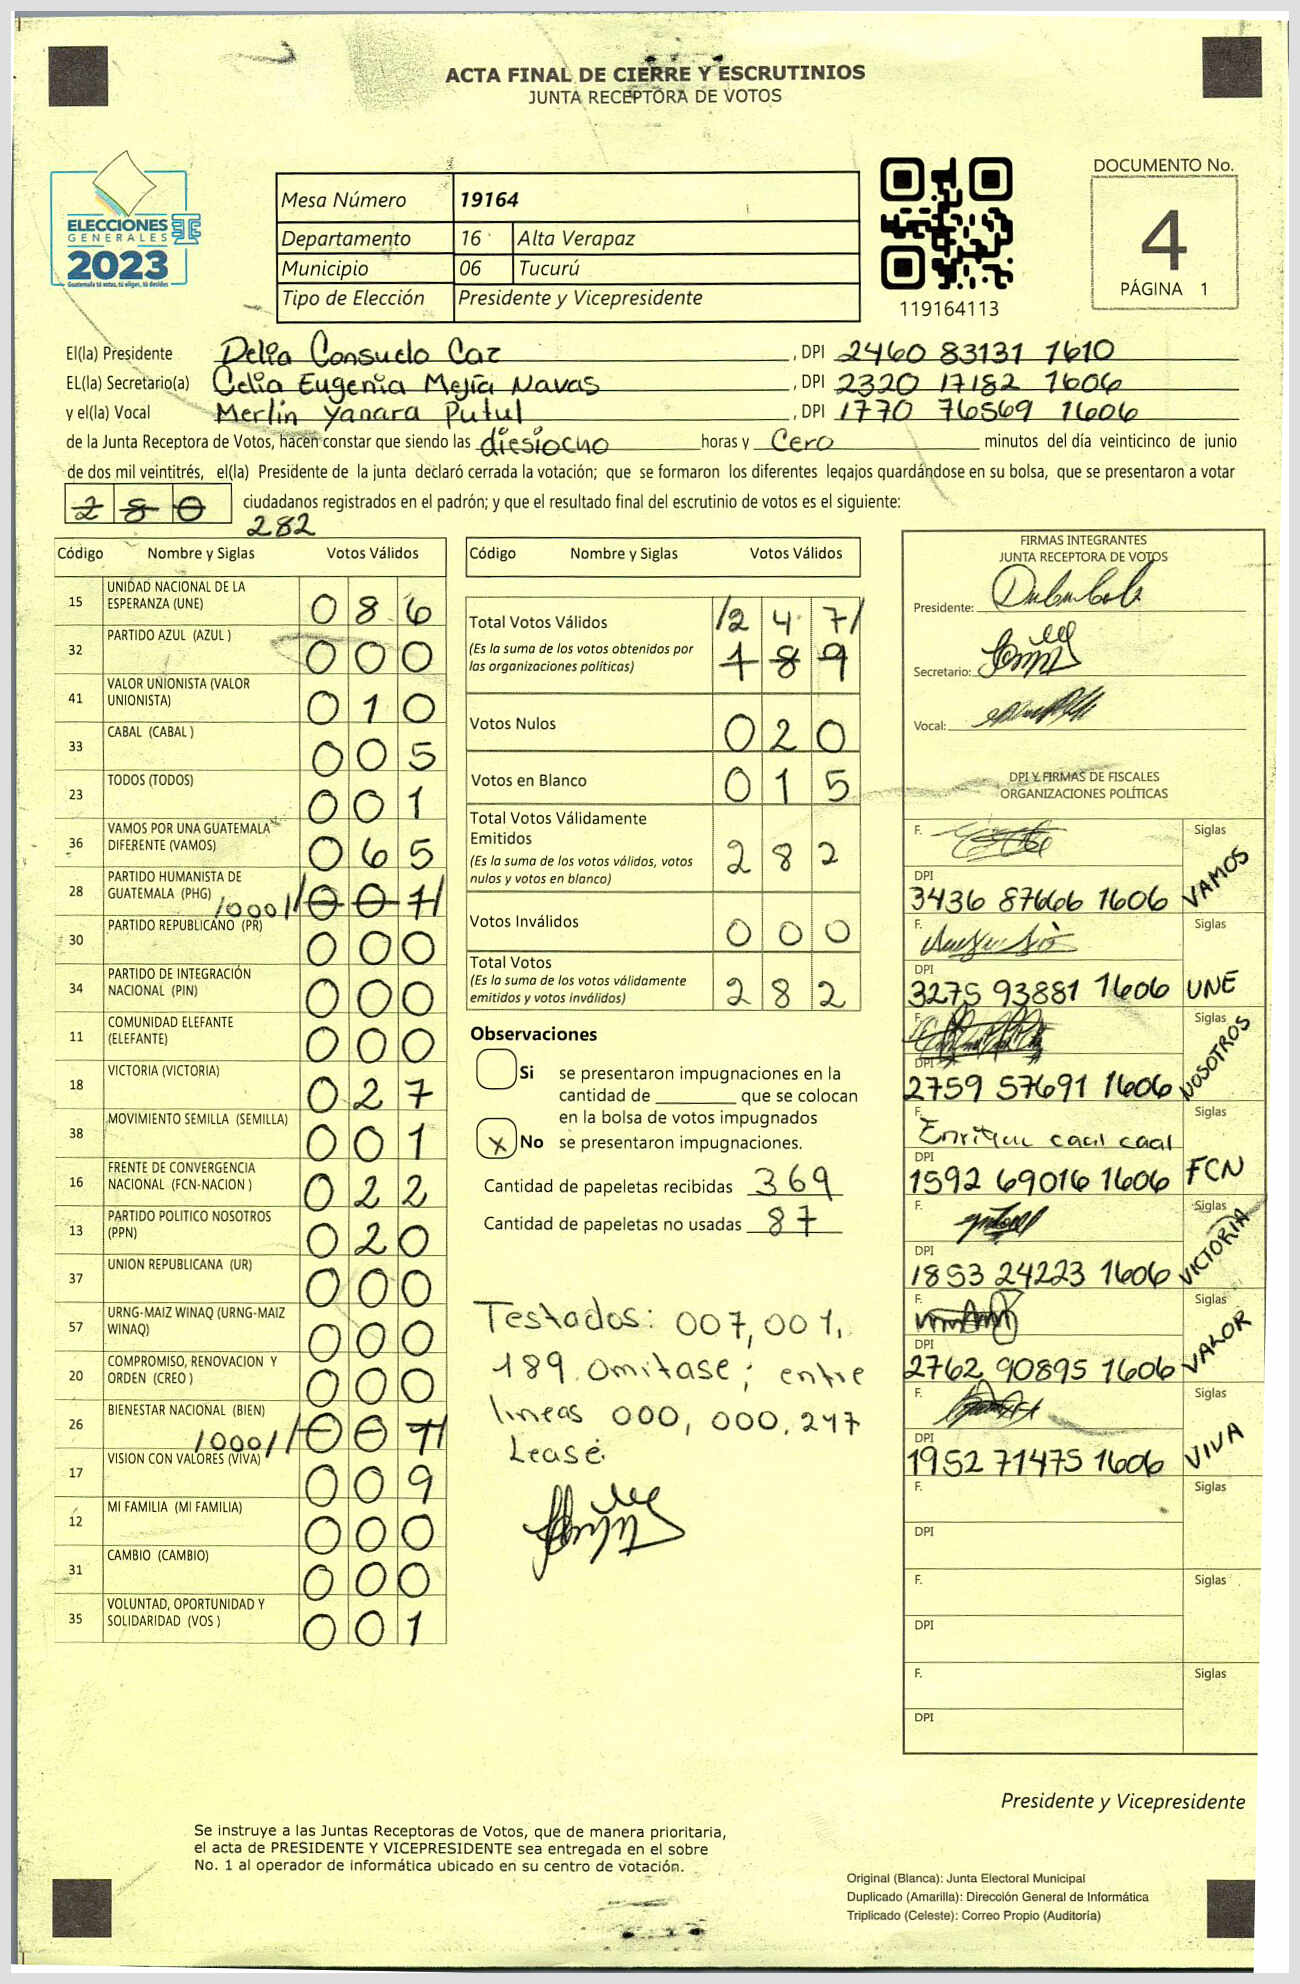 ACTA FINAL DE CIERRE Y ESCRUTINIOS
JUNTA RECEPTORA DE VOTOS
ELECCIONES
GENERALES
2023
Guatemala tú votas, tú eliges, tú decides
Mesa Número 19164
Departamento 16 Alta Verapaz
Municipio 06 Tucurú
Tipo de Elección Presidente y Vicepresidente
119164113
DOCUMENTO No.
4
PÁGINA 1
El(la) Presidente Delia Consuelo Caz, DPI 2460 83131 1610
EL(la) Secretario(a) Celia Eugenia Mejía Navas, DPI 2320 17182 1606
y el(la) Vocal Merlin Yanara Putul, DPI 1770 76569 1606
de la Junta Receptora de Votos, hacen constar que siendo las diesiocho horas y Cero minutos del día veinticinco de junio
de dos mil veintitrés, el(la) Presidente de la junta declaró cerrada la votación; que se formaron los diferentes legajos quardándose en su bolsa, que se presentaron a votar
280 ciudadanos registrados en el padrón; y que el resultado final del escrutinio de votos es el siguiente:
282
Código Nombre y Siglas Votos Válidos
15 UNIDAD NACIONAL DE LA ESPERANZA (UNE) 086
32 PARTIDO AZUL (AZUL ) 000
41 VALOR UNIONISTA (VALOR UNIONISTA) 010
33 CABAL (CABAL ) 005
23 TODOS (TODOS) 001
36 VAMOS POR UNA GUATEMALA DIFERENTE (VAMOS) 065
28 PARTIDO HUMANISTA DE GUATEMALA (PHG) /000/ /007/
30 PARTIDO REPUBLICANO (PR) 000
34 PARTIDO DE INTEGRACIÓN NACIONAL (PIN) 000
11 COMUNIDAD ELEFANTE (ELEFANTE) 000
18 VICTORIA (VICTORIA) 027
38 MOVIMIENTO SEMILLA (SEMILLA) 001
16 FRENTE DE CONVERGENCIA NACIONAL (FCN-NACION ) 022
13 PARTIDO POLITICO NOSOTROS (PPN) 020
37 UNION REPUBLICANA (UR) 000
57 URNG-MAIZ WINAQ (URNG-MAIZ WINAQ) 000
20 COMPROMISO, RENOVACION Y ORDEN (CREO ) 000
26 BIENESTAR NACIONAL (BIEN) /000/ /001/
17 VISION CON VALORES (VIVA) 009
12 MI FAMILIA (MI FAMILIA) 000
31 CAMBIO (CAMBIO) 000
35 VOLUNTAD, OPORTUNIDAD Y SOLIDARIDAD (VOS ) 001
Código Nombre y Siglas Votos Válidos
Total Votos Válidos /247/
(Es la suma de los votos obtenidos por las organizaciones políticas) 189
Votos Nulos 020
Votos en Blanco 015
Total Votos Válidamente Emitidos
(Es la suma de los votos válidos, votos nulos y votos en blanco) 282
Votos Inválidos 000
Total Votos
(Es la suma de los votos válidamente emitidos y votos inválidos) 282
Observaciones
Si se presentaron impugnaciones en la
cantidad de ________ que se colocan
en la bolsa de votos impugnados
x No se presentaron impugnaciones.
Cantidad de papeletas recibidas 369
Cantidad de papeletas no usadas 87
Testados: 007, 001,
189. Omitase; entre
lineas 000, 000, 247
Lease.
FIRMAS INTEGRANTES
JUNTA RECEPTORA DE VOTOS
Presidente:
Secretario:
Vocal:
DPI Y FIRMAS DE FISCALES
ORGANIZACIONES POLÍTICAS
F. Siglas
DPI
3436 87666 1606 VAMOS
F. Siglas
DPI
3275 93881 1606 UNE
F. Siglas
DPI
2759 57691 1606 NOSOTROS
F. Enrique caal caal Siglas
DPI
1592 69016 1606 FCN
F. Siglas
DPI
1853 24223 1606 VICTORIA
F. Siglas
DPI
2762 90895 1606 VALOR
F. Siglas
DPI
1952 71475 1606 VIVA
F. Siglas
DPI
F. Siglas
DPI
F. Siglas
DPI
Presidente y Vicepresidente
Se instruye a las Juntas Receptoras de Votos, que de manera prioritaria,
el acta de PRESIDENTE Y VICEPRESIDENTE sea entregada en el sobre
No. 1 al operador de informática ubicado en su centro de votación.
Original (Blanca): Junta Electoral Municipal
Duplicado (Amarilla): Dirección General de Informática
Triplicado (Celeste): Correo Propio (Auditoría)